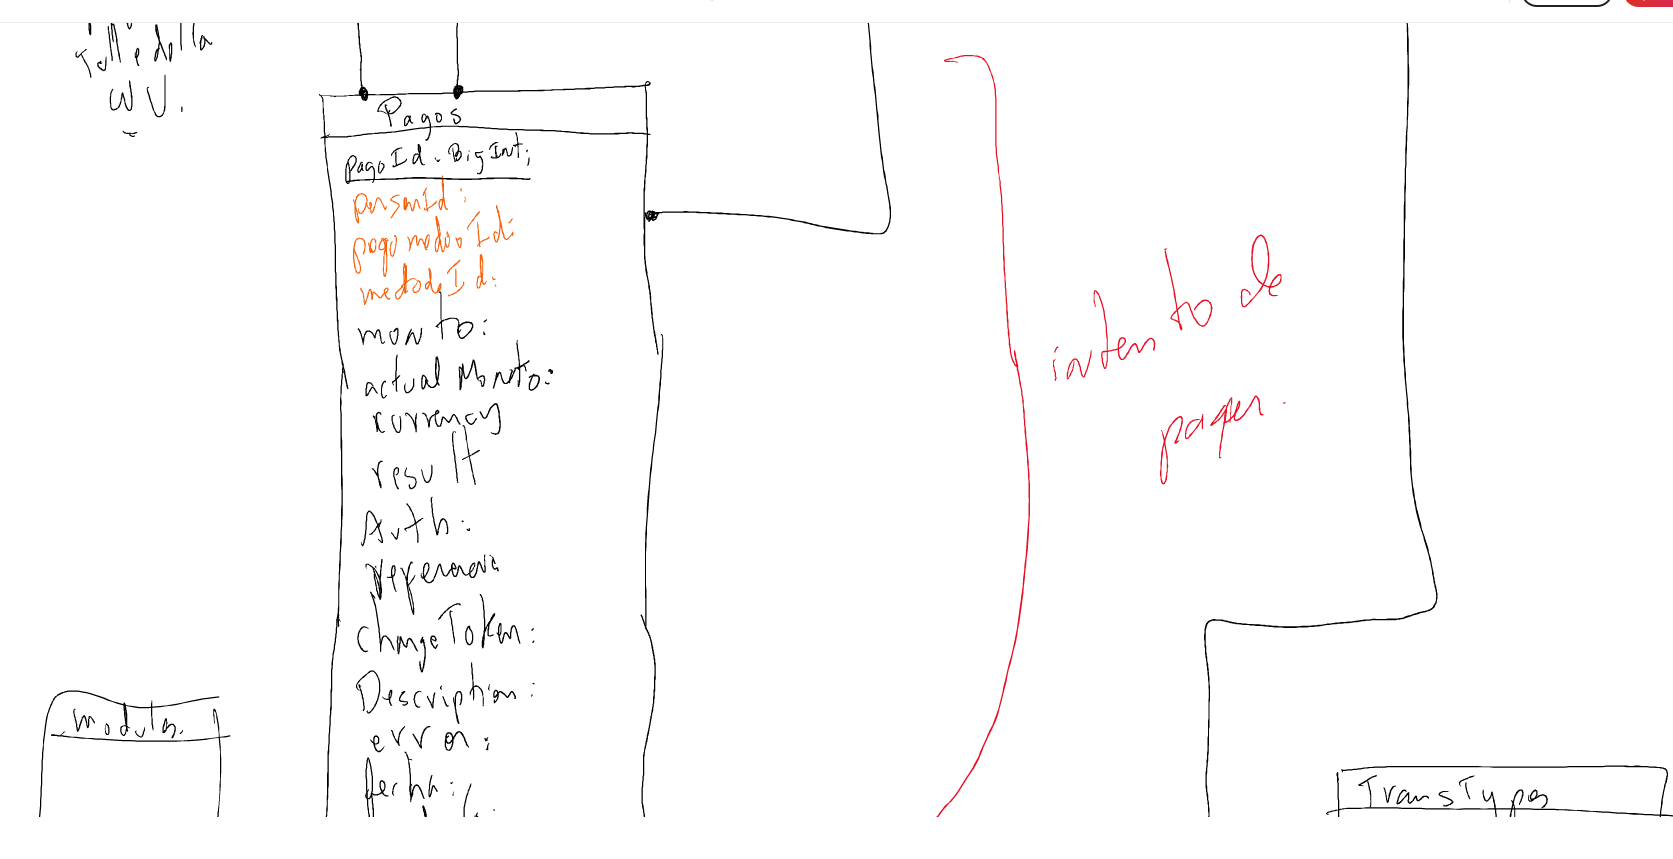 della
WV.
Pagos
PagoId. BigInt;
personId:
pago medio Id:
metodo Id:
monto:
actual Monto:
currency
result
Auth:
referencia
ChangeToken:
Description:
error:
fecha:
intento de
pagar.
modulos.
TransTypes